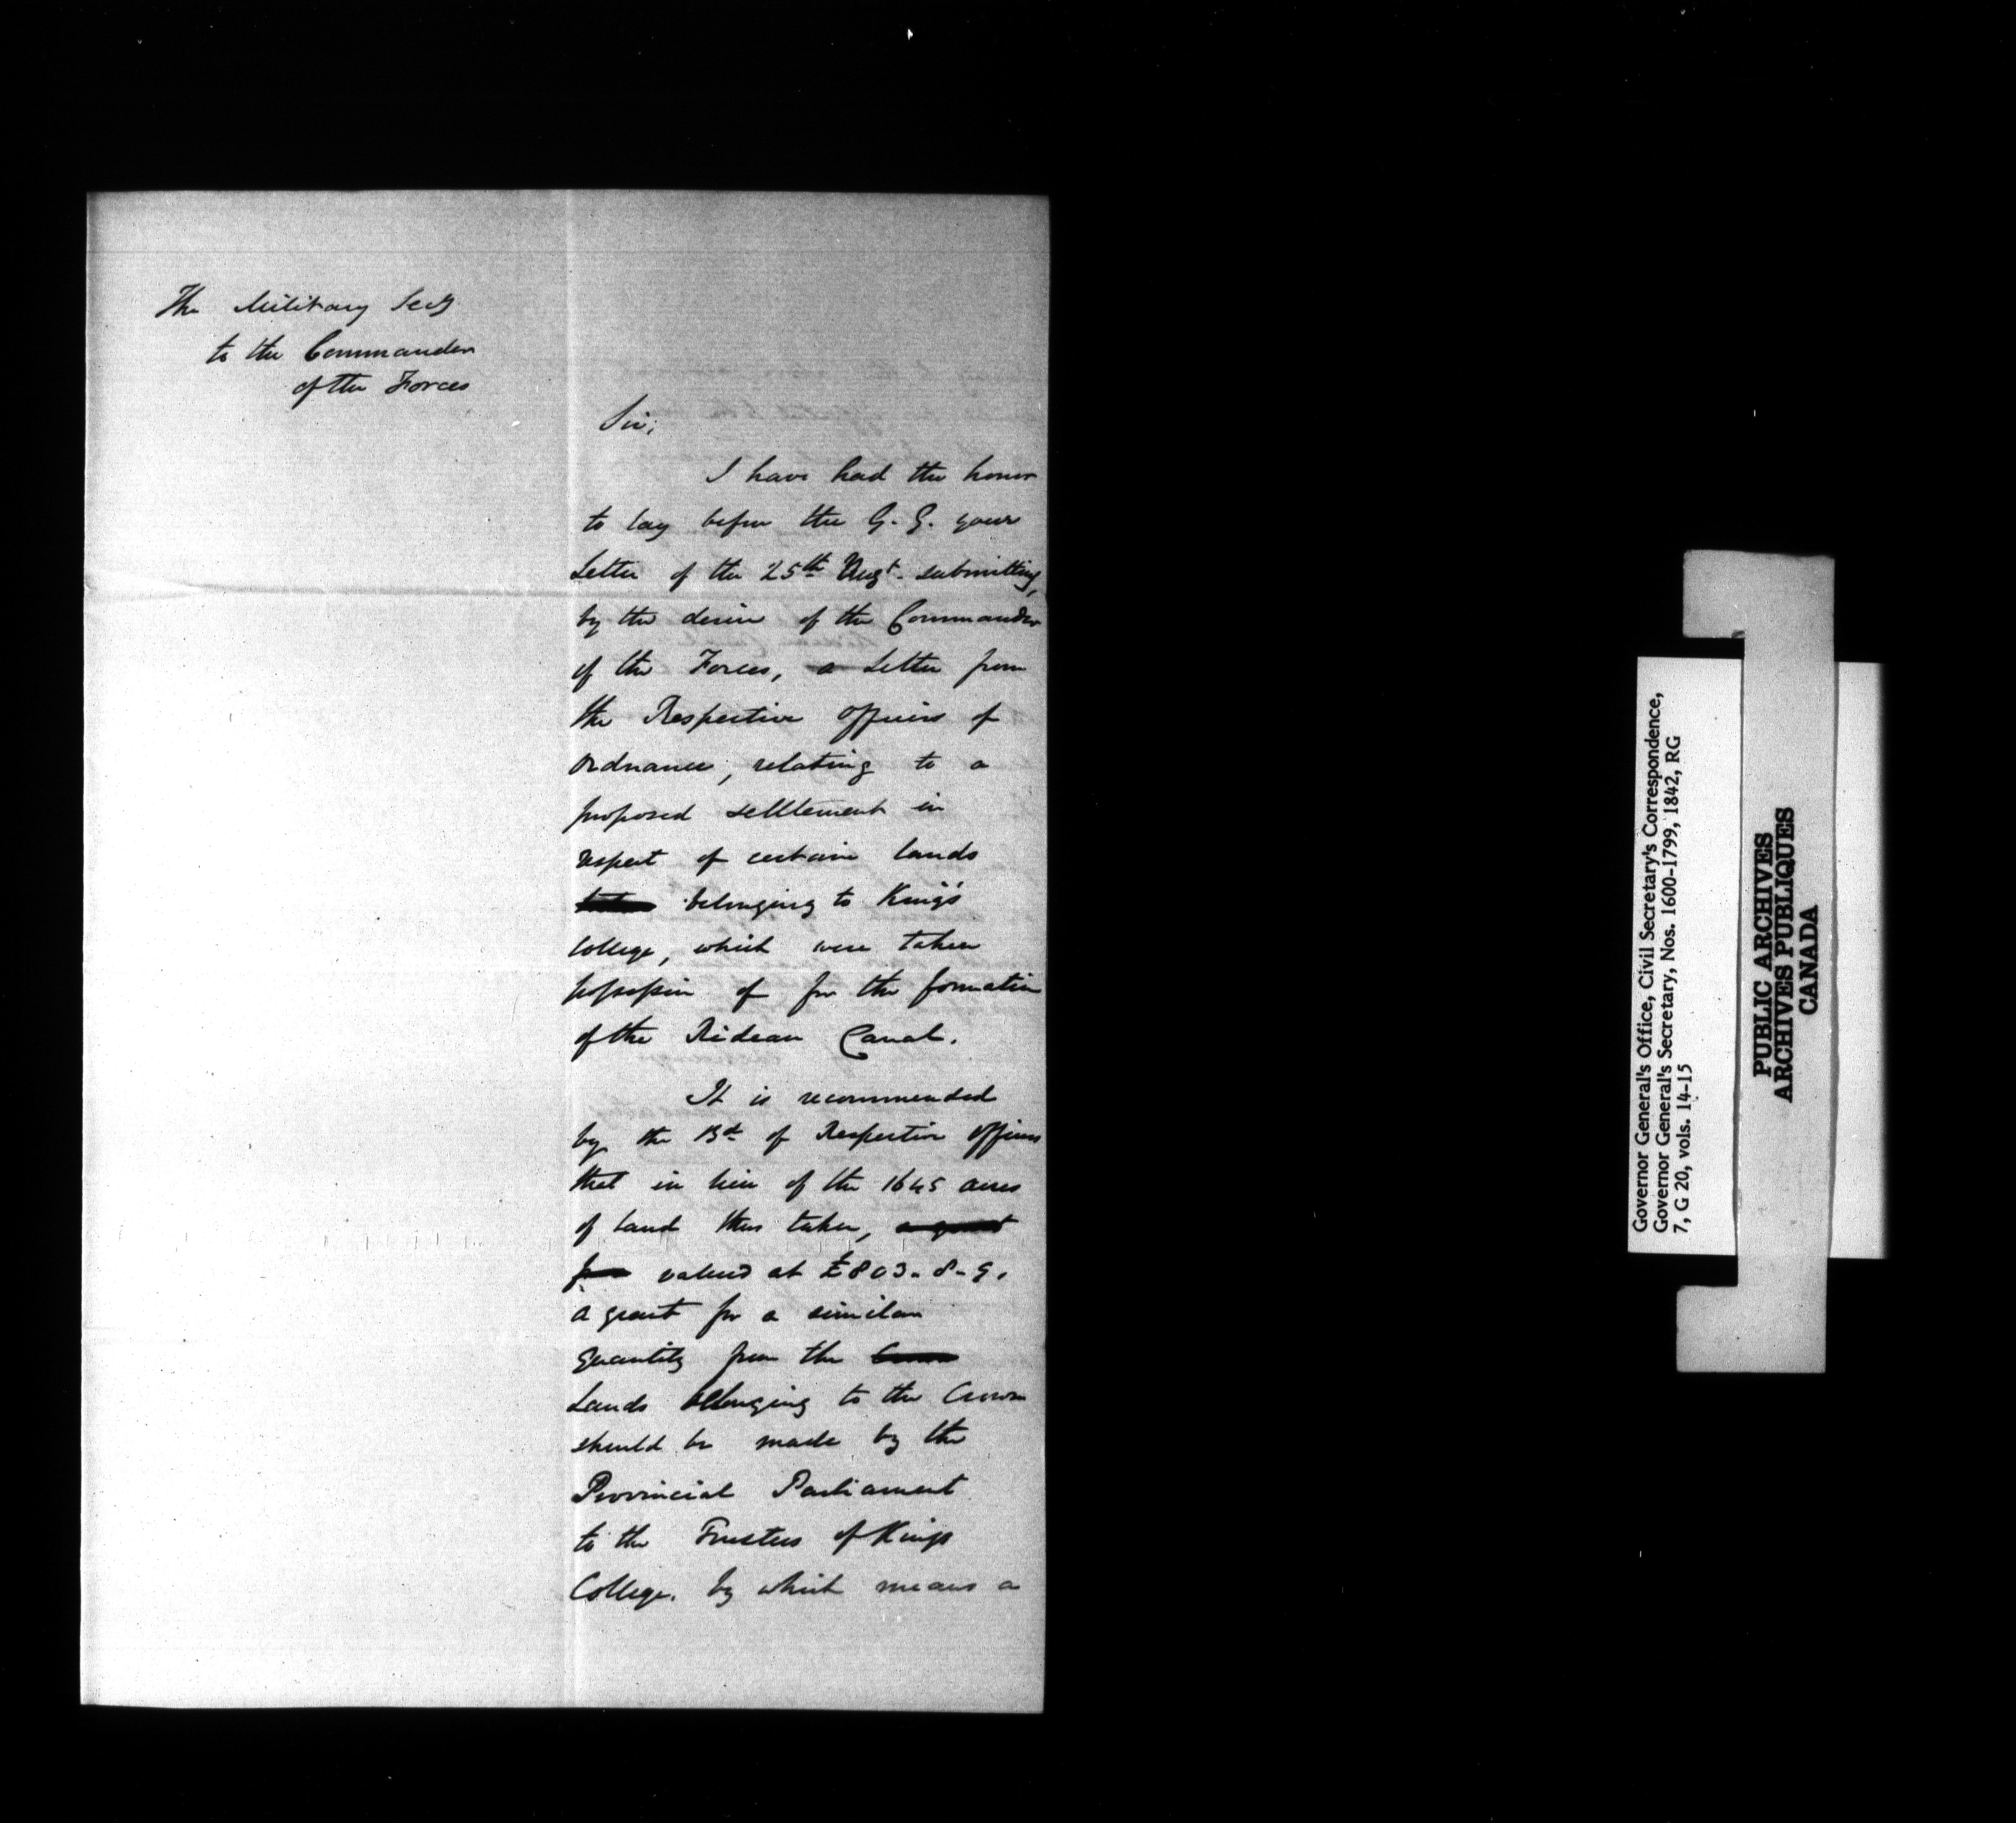 The Military Secy
to the Commander
of the Forces
Sir,
I have had the honor
to lay before the G. G. your
Letter of the 25th Augt. submitting,
by the desire of the Commander
of the Forces, a Letter from
the Respective Officers of
Ordnance, relating to a
proposed settlement in
respect of certain lands
belonging to King's
College, which were taken
possession of for the formation
of the Rideau Canal.
It is recommended
by the Bd. of Respective Officers
that in lieu of the 1645 acres
of land thus taken, a grant
for valued at £803-8-9,
a grant for a similar
quantity from the Crown
Lands belonging to the Crown
should be made by the
Provincial Parliament
to the Trustees of Kings
College. by which means a
Governor General's Office, Civil Secretary's Correspondence,
Governor General's Secretary, Nos. 1600-1799, 1842, RG
7, G 20, vols. 14-15
PUBLIC ARCHIVES
ARCHIVES PUBLIQUES
CANADA